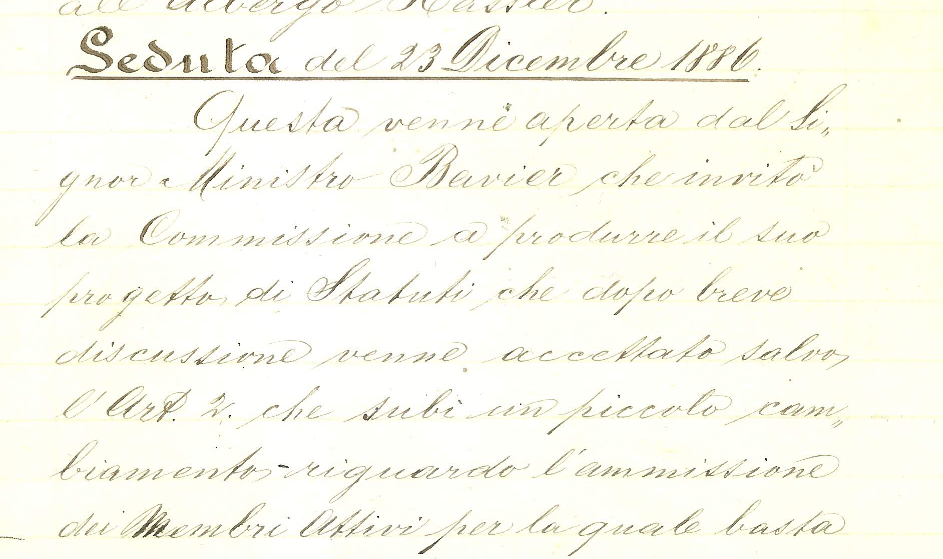 all'Albergo Hassler.
Seduta del 23 Dicembre 1886.
Questa venne aperta dal Si„
gnor Ministro Bavier che invitò
la Commissione a produrre il suo
progetto di Statuti che dopo breve
discussione venne accettato salvo
l'Art. 2. che subi un piccolo cam„
biamento riguardo l'ammissione
dei Membri Attivi per la quale basta